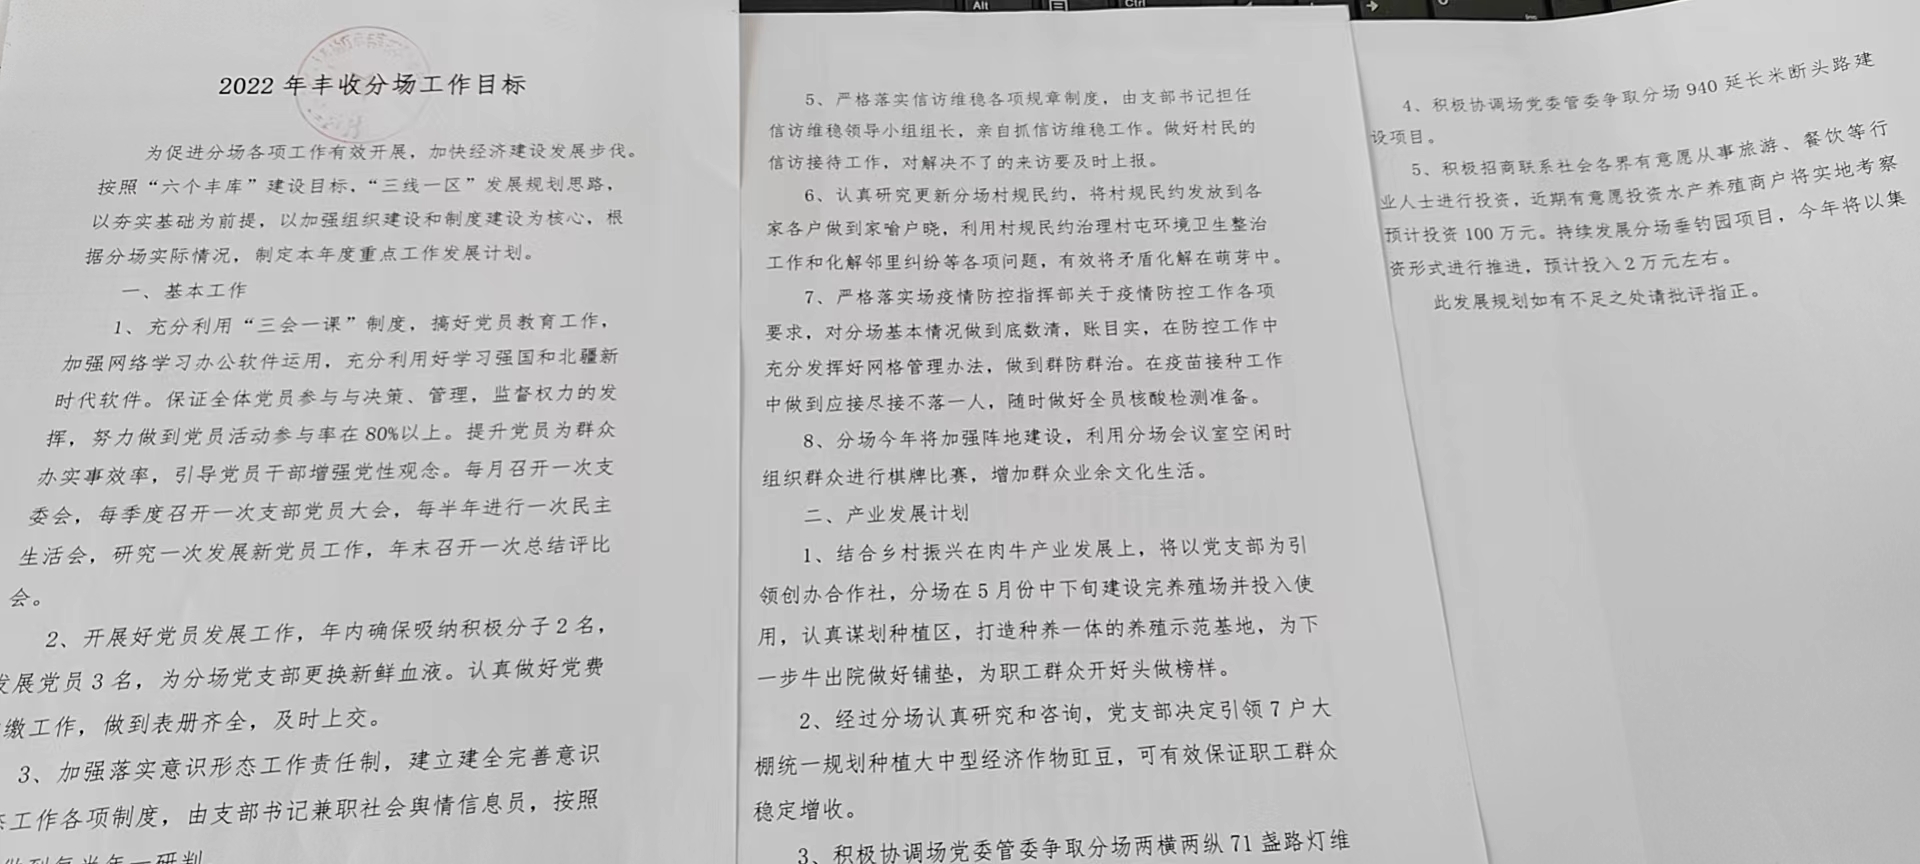 2022年丰收分场工作目标
为促进分场各项工作有效开展，加快经济建设发展步伐。
按照“六个丰库”建设目标，“三线一区”发展规划思路，
以夯实基础为前提，以加强组织建设和制度建设为核心，根
据分场实际情况，制定本年度重点工作发展计划。
一、基本工作
1、充分利用“三会一课”制度，搞好党员教育工作，
加强网络学习办公软件运用，充分利用好学习强国和北疆新
时代软件。保证全体党员参与与决策、管理，监督权力的发
挥，努力做到党员活动参与率在80%以上。提升党员为群众
办实事效率，引导党员干部增强党性观念。每月召开一次支
委会，每季度召开一次支部党员大会，每半年进行一次民主
生活会，研究一次发展新党员工作，年末召开一次总结评比
会。
2、开展好党员发展工作，年内确保吸纳积极分子2名，
发展党员3名，为分场党支部更换新鲜血液。认真做好党费
缴工作，做到表册齐全，及时上交。
3、加强落实意识形态工作责任制，建立建全完善意识
态工作各项制度，由支部书记兼职社会舆情信息员，按照
做到每半年一研判
5、严格落实信访维稳各项规章制度，由支部书记担任
信访维稳领导小组组长，亲自抓信访维稳工作。做好村民的
信访接待工作，对解决不了的来访要及时上报。
6、认真研究更新分场村规民约，将村规民约发放到各
家各户做到家喻户晓，利用村规民约治理村屯环境卫生整治
工作和化解邻里纠纷等各项问题，有效将矛盾化解在萌芽中。
7、严格落实场疫情防控指挥部关于疫情防控工作各项
要求，对分场基本情况做到底数清，账目实，在防控工作中
充分发挥好网格管理办法，做到群防群治。在疫苗接种工作
中做到应接尽接不落一人，随时做好全员核酸检测准备。
8、分场今年将加强阵地建设，利用分场会议室空闲时
组织群众进行棋牌比赛，增加群众业余文化生活。
二、产业发展计划
1、结合乡村振兴在肉牛产业发展上，将以党支部为引
领创办合作社，分场在5月份中下旬建设完养殖场并投入使
用，认真谋划种植区，打造种养一体的养殖示范基地，为下
一步牛出院做好铺垫，为职工群众开好头做榜样。
2、经过分场认真研究和咨询，党支部决定引领7户大
棚统一规划种植大中型经济作物豇豆，可有效保证职工群众
稳定增收。
3、积极协调场党委管委争取分场两横两纵71盏路灯维
4、积极协调场党委管委争取分场940延长米断头路建
设项目。
5、积极招商联系社会各界有意愿从事旅游、餐饮等行
业人士进行投资，近期有意愿投资水产养殖商户将实地考察
预计投资100万元。持续发展分场垂钓园项目，今年将以集
资形式进行推进，预计投入2万元左右。
此发展规划如有不足之处请批评指正。
Alt
Ctrl